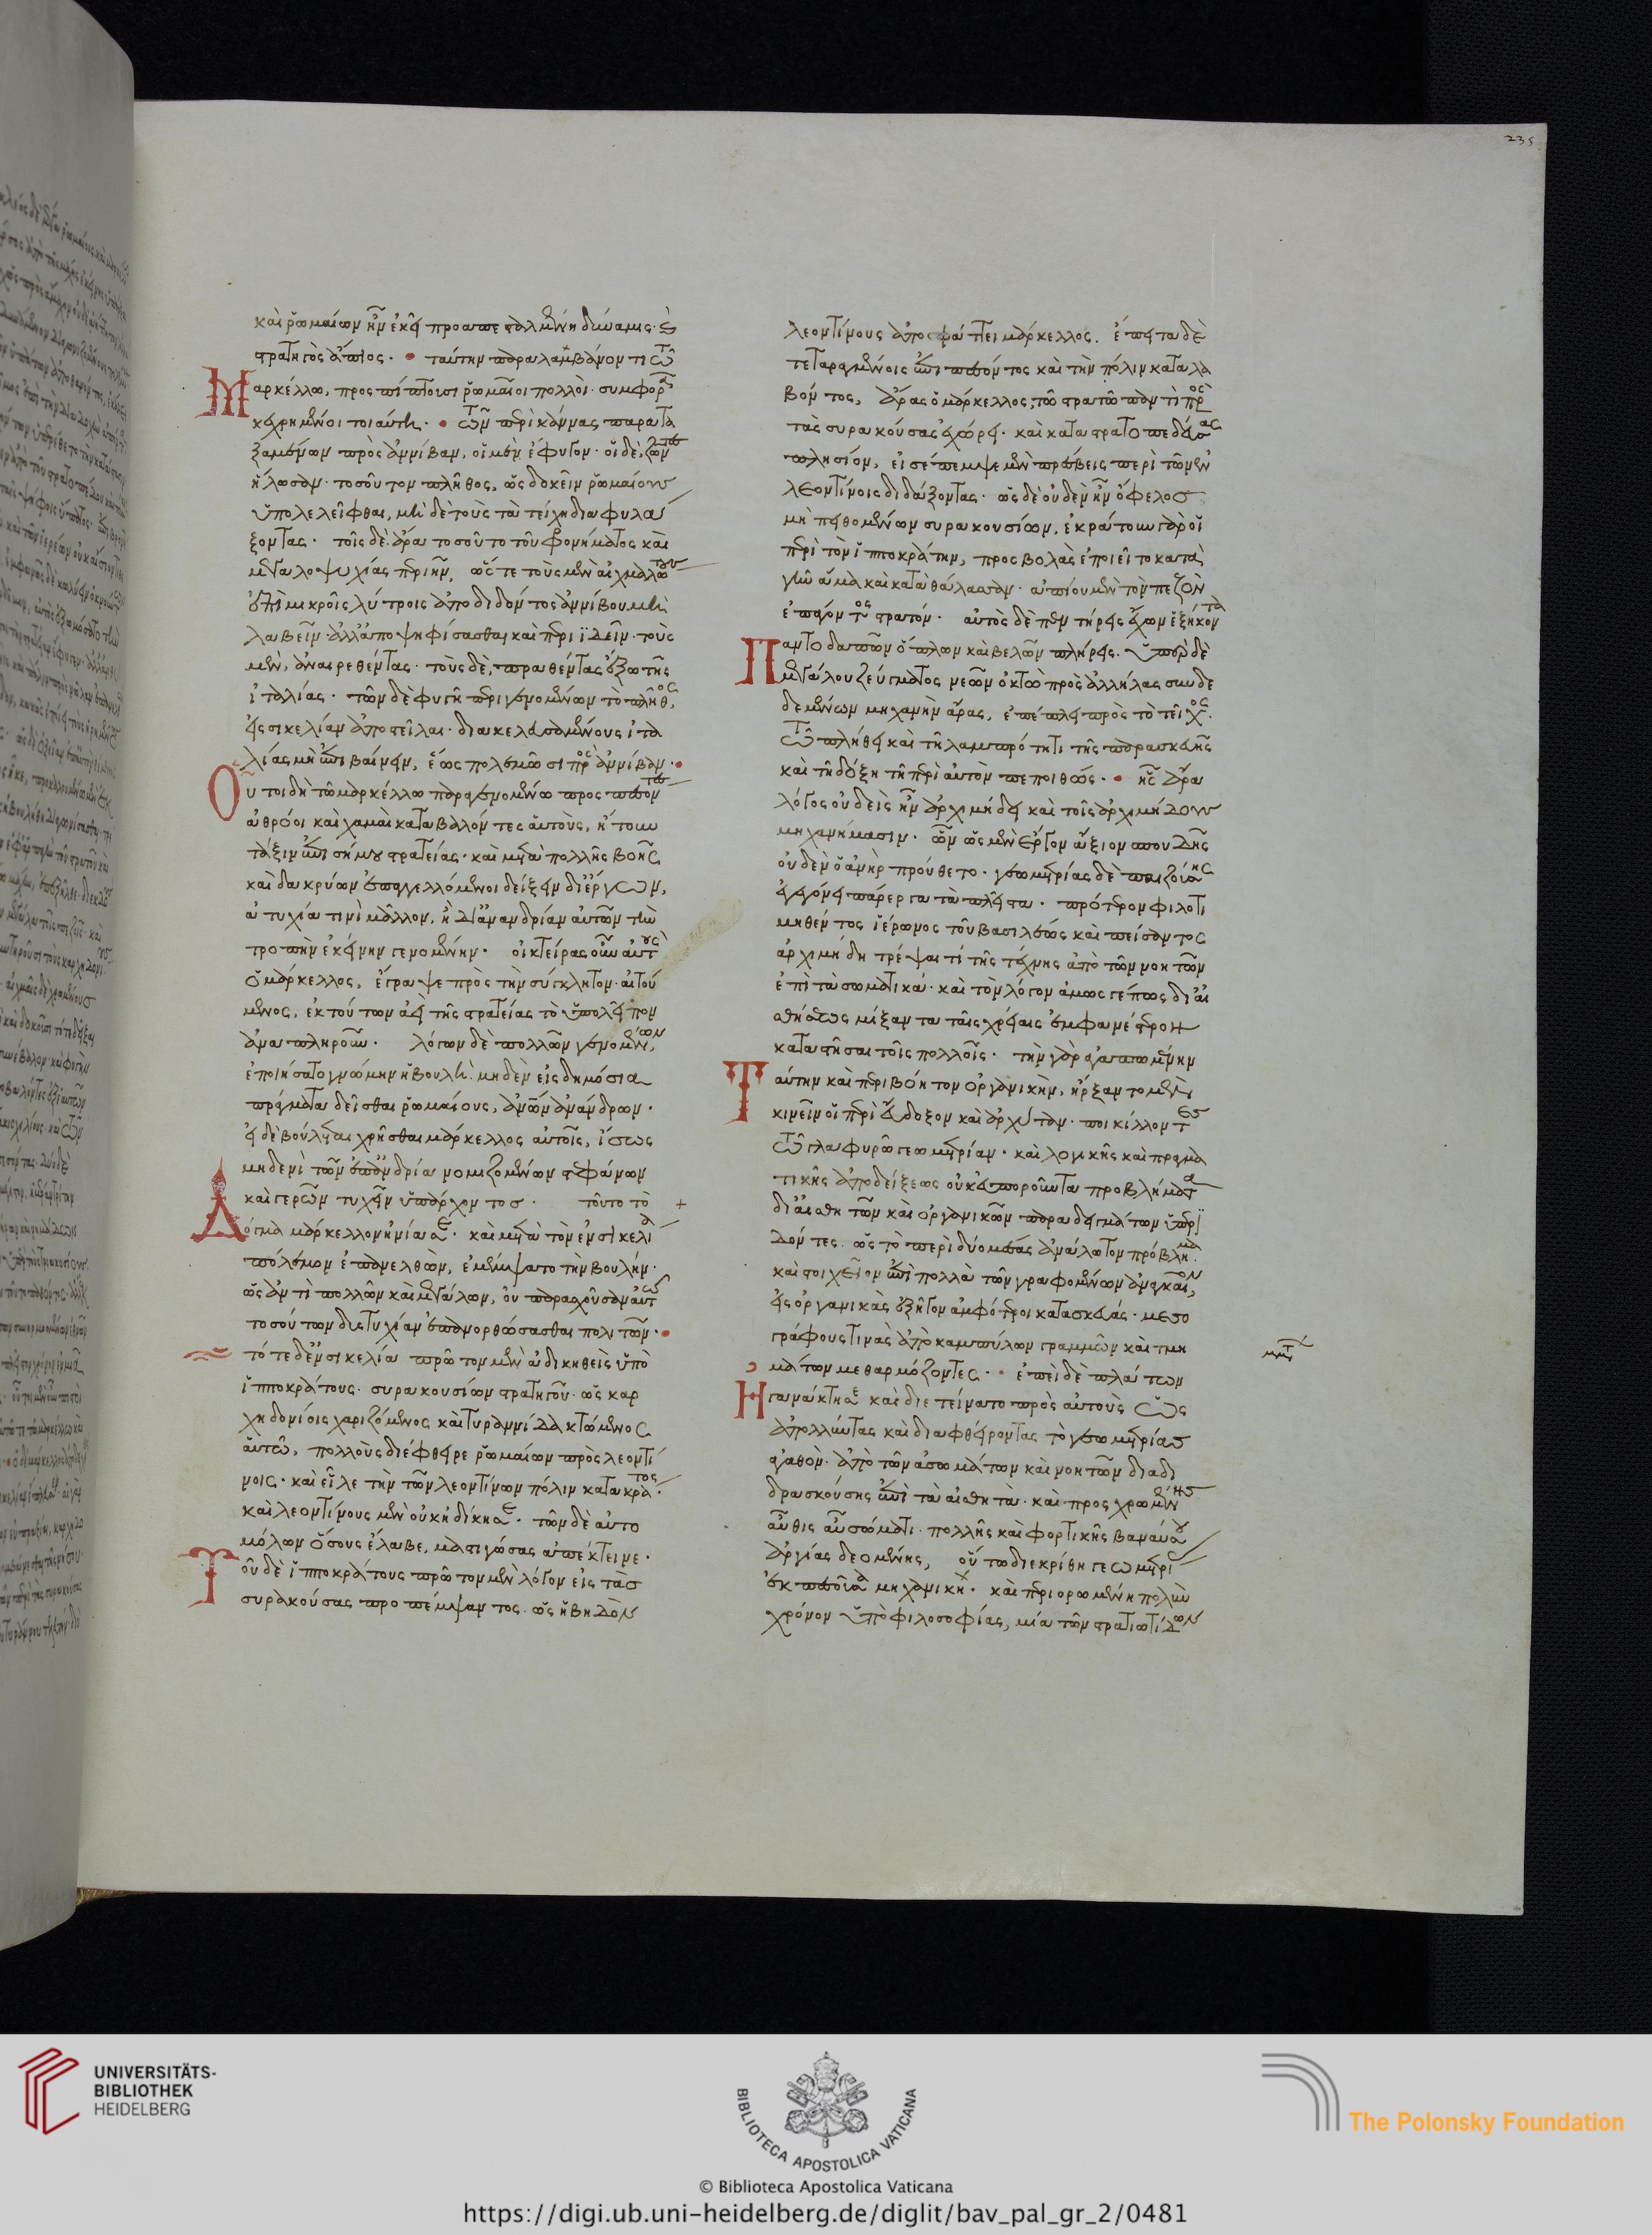 235
καὶ ῥωμαίων ἦν ἐκεῖ προαπεσταλμένη δύναμις· ἧς
στρατηγὸς ἄππιος· ταύτην παραλαμβάνοντι τῷ
Μαρκέλλω, προσπίπτουσι ῥωμαῖοι πολλοὶ· συμφορᾶ
κεχρημένοι τοιαύτη· τῶν περὶ κάννας παραταξαμένων
πρὸς ἀννίβαν, οἱ μὲν ἔφυγον· οἱ δὲ, ζῶντες
ἥλωσαν· τοσοῦτον πλῆθος, ὡς δοκεῖν ῥωμαίοις
ὑπολελεῖφθαι, μὴ δὲ τοὺς τὰ τείχη διαφυλάξοντας·
τοῖς δὲ ἄρα τοσοῦτο τοῦ φρονήματος καὶ
μεγαλοψυχίας περιῆν, ὥστε τοὺς μὲν αἰχμαλώτους
ἐπὶ μικροῖς λύτροις ἀποδιδόντος ἀννίβου μὴ
λαβεῖν ἀλλ' ἀποψηφίσασθαι καὶ περιϊδεῖν· τοὺς
μὲν, ἀναιρεθέντας· τοὺς δὲ, πραθέντας ἔξω τῆς
ἰταλίας· τῶν δὲ φυγῇ περιγενομένων τὸ πλῆθος,
εἰς σικελίαν ἀποστεῖλαι· διακελευσαμένους ἰταλίας
μὴ ἐπιβαίνειν, ἕως πολεμῶσι πρὸς ἀννίβαν·
Οὗτοι δὴ τῶ μαρκέλλω παραγενομένω προσπεσόντες
ἀθρόοι καὶ χαμαὶ καταβαλόντες αὑτοὺς, ἤτουν
τάξιν ἐπισήμου στρατείας· καὶ μετὰ πολλῆς βοῆς
καὶ δακρύων ἐπαγγελλόμενοι δείξειν δι' ἔργων,
ἀτυχία τινὶ μᾶλλον, ἢ δι' ἀνανδρίαν αὐτῶν τὴν
τροπὴν ἐκείνην γενομένην· οἰκτείρας οὖν αὐτοὺς
ὁ μάρκελλος, ἔγραψε πρὸς τὴν σύγκλητον· αἰτούμενος,
ἐκ τούτων ἀεὶ τῆς στρατείας τὸ ὑπολεῖπον
ἀναπληροῦν· λόγων δὲ πολλῶν γενομένων,
ἐποιήσατο γνώμην ἡ βουλὴ· μηδὲν εἰς δημόσια
πράγματα δεῖσθαι ῥωμαίους, ἀνθρώπων ἀνάνδρων·
εἰ δὲ βούλεται χρῆσθαι μάρκελλος αὐτοῖς, ἴσως
μηδενὶ τῶν ἐπ' ἀνδρία νομιζομένων στεφάνων
καὶ γερῶν τυχεῖν ὑπάρχοντος· τοῦτο τὸ
Δόγμα μάρκελλον ἠνίασε· καὶ μετὰ τὸν ἐν σικελία
πόλεμον ἐπανελθὼν, ἐμέμψατο τὴν βουλήν·
ὡς ἀντὶ πολλῶν καὶ μεγάλων, οὐ παρασχοῦσαν αὐτῶ
τοσούτων δυστυχίαν ἐπανορθώσασθαι πολιτῶν·
τότε δ' ἐν σικελία πρῶτον μὲν ἀδικηθεὶς ὑπὸ
ἱπποκράτους· συρακουσίων στρατηγοῦ· ὡς καρχηδονίοις
χαριζόμενος καὶ τυραννίδα κτώμενος
αὑτῶ, πολλοὺς διέφθειρε ῥωμαίων πρὸς λεοντίνοις·
καὶ εἷλε τὴν τῶν λεοντίνων πόλιν κατακράτος·
καὶ λεοντίνους μὲν οὐκ ἠδίκησε· τῶν δὲ αὐτομόλων
ὅσους ἔλαβε, μαστιγώσας ἀπέκτεινε·
Τοῦ δὲ ἱπποκράτους πρῶτον μὲν λόγον εἰς τὰς
συρακούσας προπέμψαντος· ὡς ἡβηδὸν
λεοντίνους ἀποσφάττει μάρκελλος· ἔπειτα δὲ
τεταραγμένοις ἐπιπεσόντος καὶ τὴν πόλιν καταλαβόντος,
ἄρας ὁ μάρκελλος, τῶ στρατῶ παντὶ πρὸς
τὰς συρακούσας ἐχώρει· καὶ καταστρατοπεδεύσας
πλησίον, εἰσέπεμψε μὲν πρέσβεις περὶ τῶν ἐν
λεοντίνοις διδάξοντας· ὡς δὲ οὐδὲν ἦν ὄφελος
μὴ πειθομένων συρακουσίων, ἐκράτουν γὰρ οἱ
περὶ τὸν ἱπποκράτην, προσβολὰς ἐποιεῖτο κατὰ
γῆν ἅμα καὶ κατὰ θάλασσαν· ἀππίου μὲν τὸν πεζὸν
ἐπάγοντος στρατόν· αὐτὸς δὲ πεντήρεις ἔχων ἑξήκοντα
Παντοδαπῶν ὅπλων καὶ βελῶν πλήρεις· ὑπὲρ δὲ
μεγάλου ζεύγματος νεῶν ὀκτὼ πρὸς ἀλλήλας συνδεδεμένων
μηχανὴν ἄρας, ἐπέπλει πρὸς τὸ τεῖχος·
τῶ πλήθει καὶ τῇ λαμπρότητι τῆς παρασκευῆς
καὶ τῇ δόξῃ τῇ περὶ αὐτὸν πεποιθώς· ἧς ἄρα
λόγος οὐδεὶς ἦν ἀρχιμήδει καὶ τοῖς ἀρχιμήδους
μηχανήμασιν· ὧν ὡς μὲν ἔργον ἄξιον σπουδῆς
οὐδὲν ὁ ἀνὴρ προύθετο· γεωμετρίας δὲ παιζούσης
ἐγεγόνει πάρεργα τὰ πλεῖστα· πρότερον φιλοτιμηθέντος
ἱέρωνος τοῦ βασιλέως καὶ πείσαντος
ἀρχιμήδη τρέψαι τί τῆς τέχνης ἀπὸ τῶν νοητῶν
ἐπὶ τὰ σωματικά· καὶ τὸν λόγον ἁμωσγέπως δι' αἰσθήσεως
μίξαντα ταῖς χρείαις ἐμφανέστερον
καταστῆσαι τοῖς πολλοῖς· τὴν γὰρ ἀγαπωμένην
Ταύτην καὶ περιβόητον ὀργανικὴν, ἤρξαντο μὲν
κινεῖν οἱ περὶ εὔδοξον καὶ ἀρχύταν· ποικίλλοντες
τῶ γλαφυρῶ γεωμετρίαν· καὶ λογικῆς καὶ πραγματικῆς
ἀποδείξεως οὐκ εὐποροῦντα προβλήματα
δι' αἰσθητῶν καὶ ὀργανικῶν παραδειγμάτων ὑπερείδοντες·
ὡς τὸ περὶ δύο μέσας ἀνάλογον πρόβλημα·
καὶ στοιχεῖον ἐπὶ πολλὰ τῶν γραφομένων ἀναγκαῖον,
εἰς ὀργανικὰς ἐξῆγον ἀμφότεροι κατασκευάς· μεσογράφους
τινὰς ἀπὸ καμπύλων γραμμῶν καὶ τμημάτων
μεθαρμόζοντες· ἐπεὶ δὲ πλάτων
Ἠγανάκτησε καὶ διετείνατο πρὸς αὐτοὺς ὡς
ἀπολλύντας καὶ διαφθείροντας τὸ γεωμετρίας
ἀγαθὸν· ἀπὸ τῶν ἀσωμάτων καὶ νοητῶν διαδιδρασκούσης
ἐπὶ τὰ αἰσθητὰ· καὶ προσχρωμένης
αὖθις αὖ σώματι· πολλῆς καὶ φορτικῆς βαναύσου
ἀργίας δεομένης, οὕτω διεκρίθη γεωμετρίας
ἐκπεσοῦσα μηχανική· καὶ περιορωμένη πολὺν
χρόνον ὑπὸ φιλοσοφίας, μία τῶν στρατιωτίδων
UNIVERSITÄTS-
BIBLIOTHEK
HEIDELBERG
BIBLIOTECA APOSTOLICA VATICANA
The Polonsky Foundation
© Biblioteca Apostolica Vaticana
https://digi.ub.uni-heidelberg.de/diglit/bav_pal_gr_2/0481